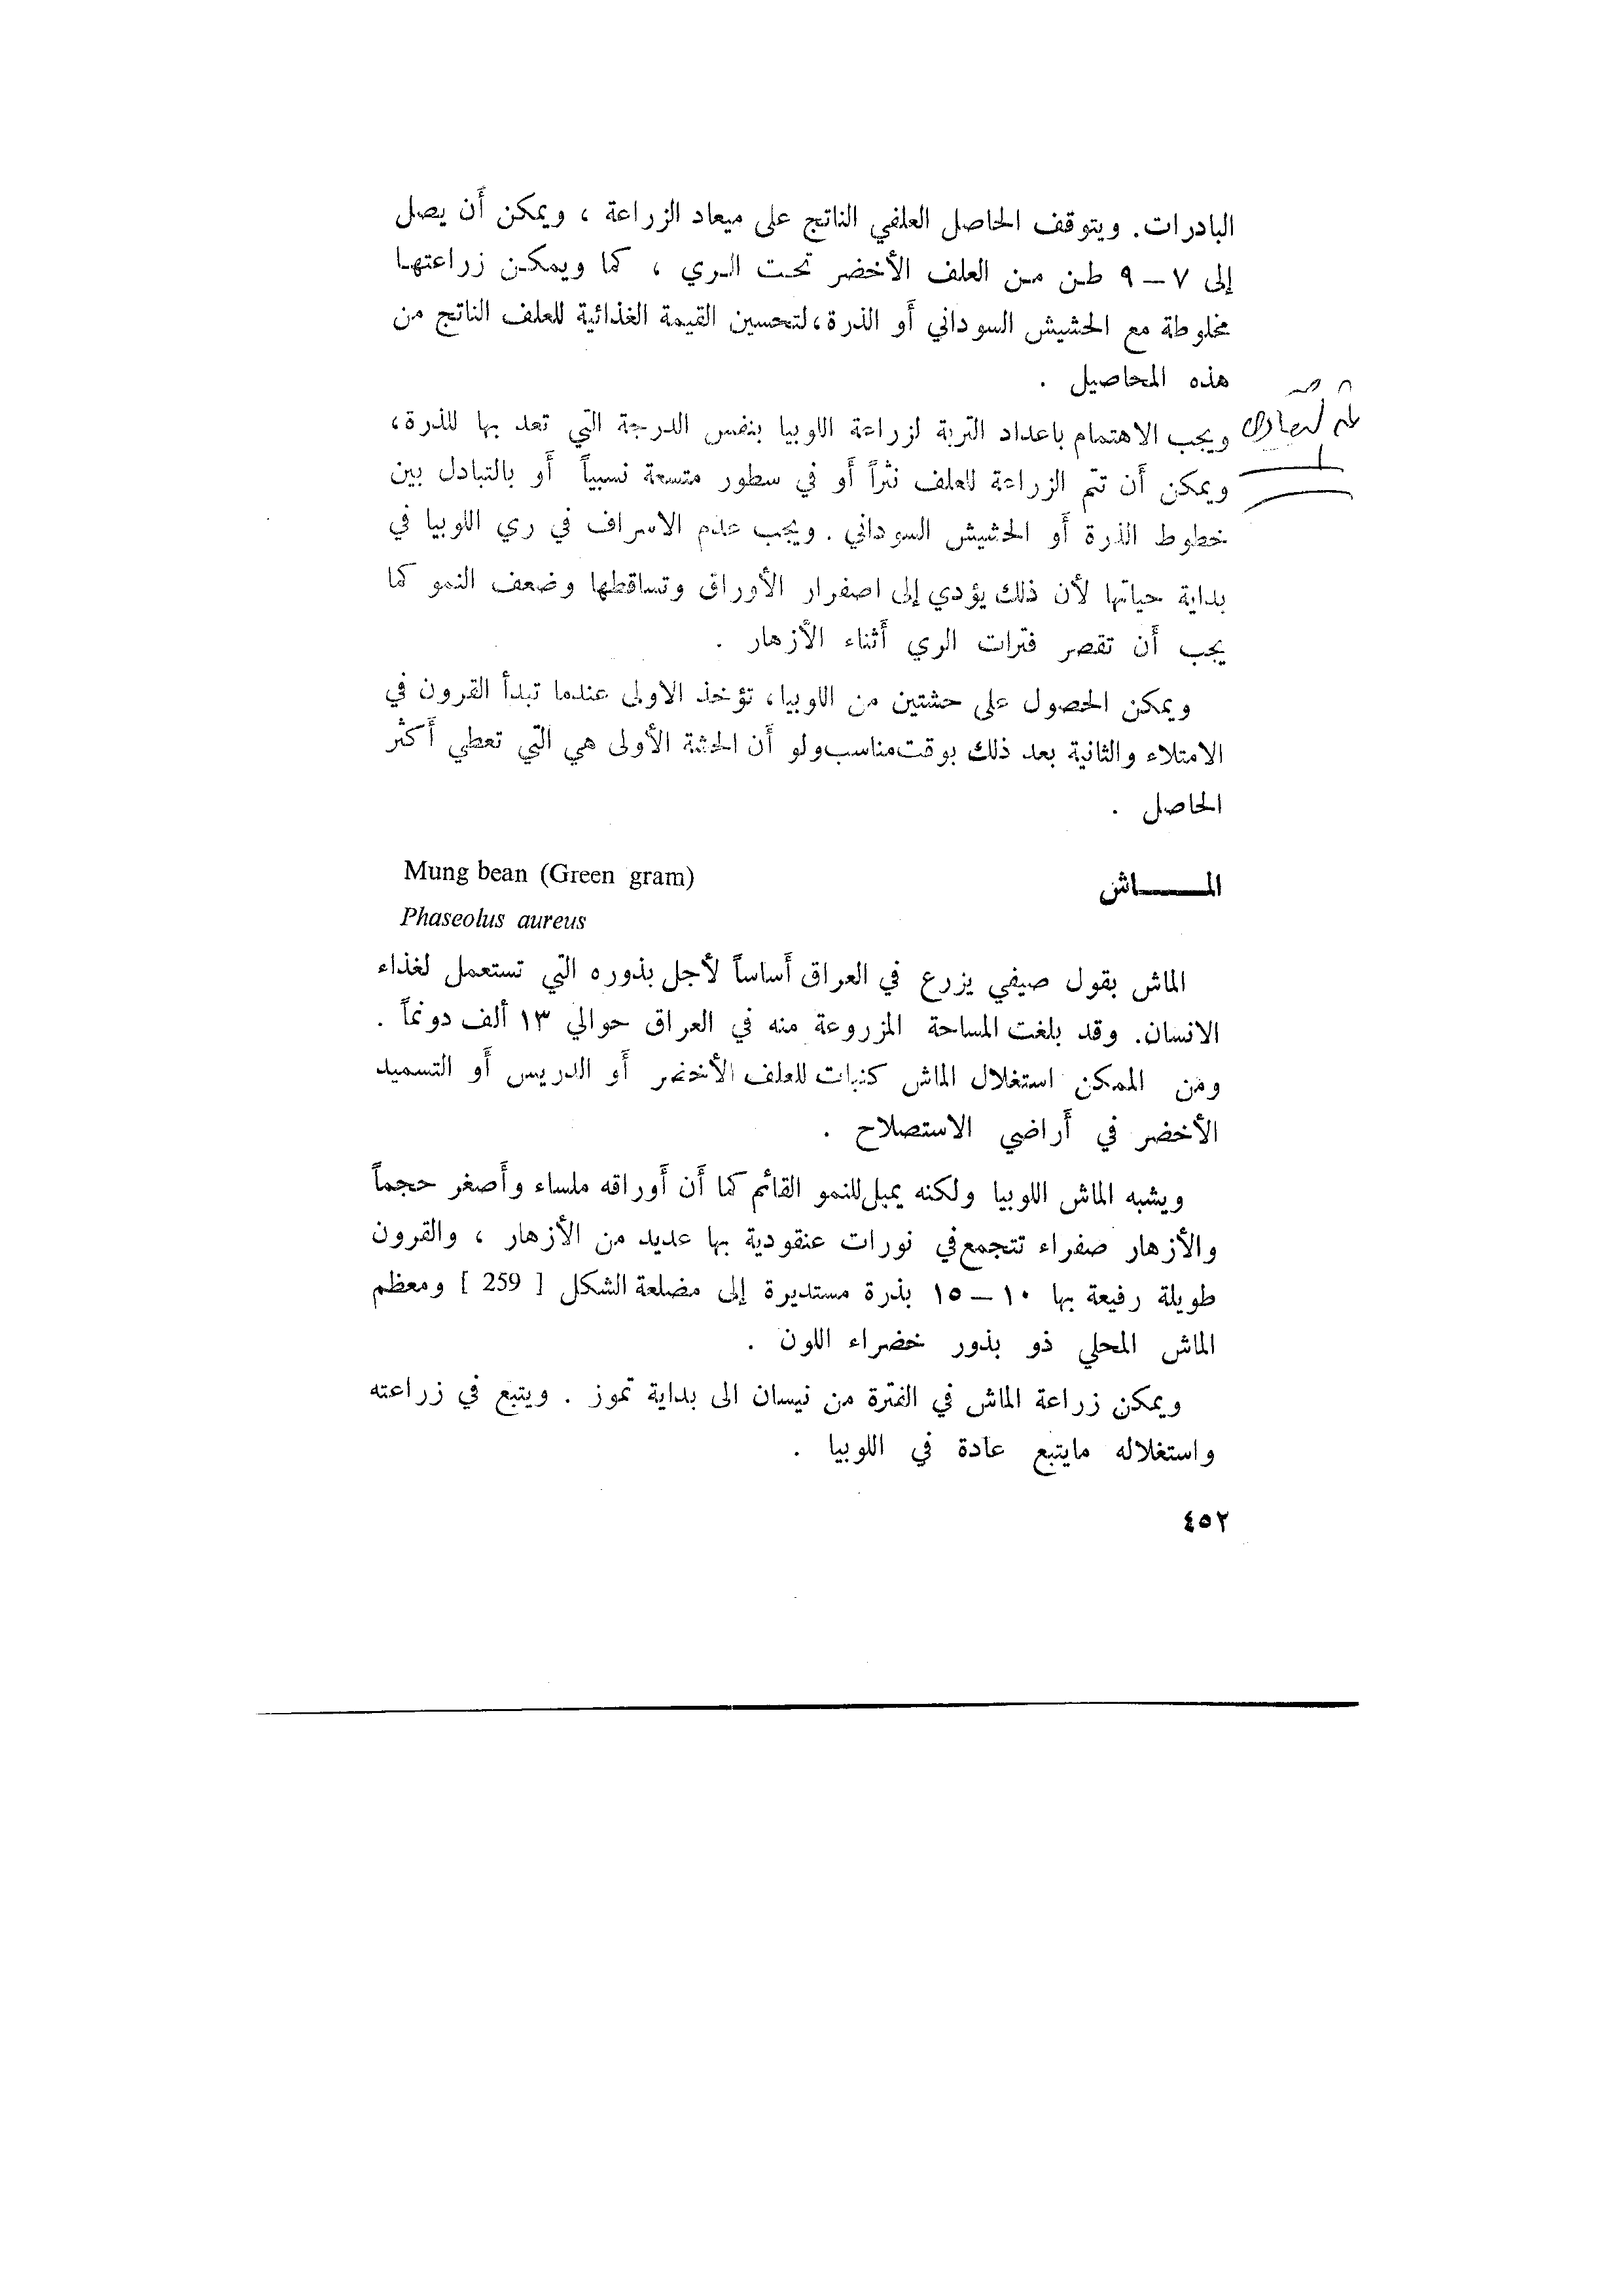 البادرات. ويتوقف الحاصل العلفي الناتج على ميعاد الزراعة ، ويمكن أَن يصل
إلى ٧ – ٩ طن من العلف الأخضر تحت الري ، كما ويمكن زراعتها
مخلوطة مع الحشيش السوداني أَو الذرة، لتحسين القيمة الغذائية للعلف الناتج من
هذه المحاصيل .
ويجب الاهتمام باعداد التربة لزراعة اللوبيا بنفس الدرجة التي تعد بها للذرة،
ويمكن أَن تتم الزراعة للعلف نثراً أَو في سطور متسعة نسبياً أَو بالتبادل بين
خطوط الذرة أَو الحشيش السوداني . ويجب عدم الاسراف في ري اللوبيا في
بداية حياتها لأن ذلك يؤدي إلى اصفرار الأوراق وتساقطها وضعف النمو كما
يجب أَن تقصر فترات الري أَثناء الأزهار .
ويمكن الحصول على حشتين من اللوبيا، تؤخذ الاولى عندما تبدأ القرون في
الامتلاء والثانية بعد ذلك بوقت مناسب ولو أَن الحشة الأولى هي التي تعطي أَكثر
الحاصل .
المـــــاش Mung bean (Green gram)
Phaseolus aureus
الماش بقول صيفي يزرع في العراق أَساساً لأجل بذوره التي تستعمل لغذاء
الانسان. وقد بلغت المساحة المزروعة منه في العراق حوالي ١٣ ألف دونماً .
ومن الممكن استغلال الماش كنبات للعلف الأخضر أَو الدريس أَو التسميد
الأخضر في أَراضي الاستصلاح .
ويشبه الماش اللوبيا ولكنه يميل للنمو القائم كما أَن أَوراقه ملساء وأَصغر حجماً
والأزهار صفراء تتجمع في نورات عنقودية بها عديد من الأزهار ، والقرون
طويلة رفيعة بها ١٠ – ١٥ بذرة مستديرة إلى مضلعة الشكل [ 259 ] ومعظم
الماش المحلي ذو بذور خضراء اللون .
ويمكن زراعة الماش في الفترة من نيسان الى بداية تموز . ويتبع في زراعته
واستغلاله مايتبع عادة في اللوبيا .
٤٥٢